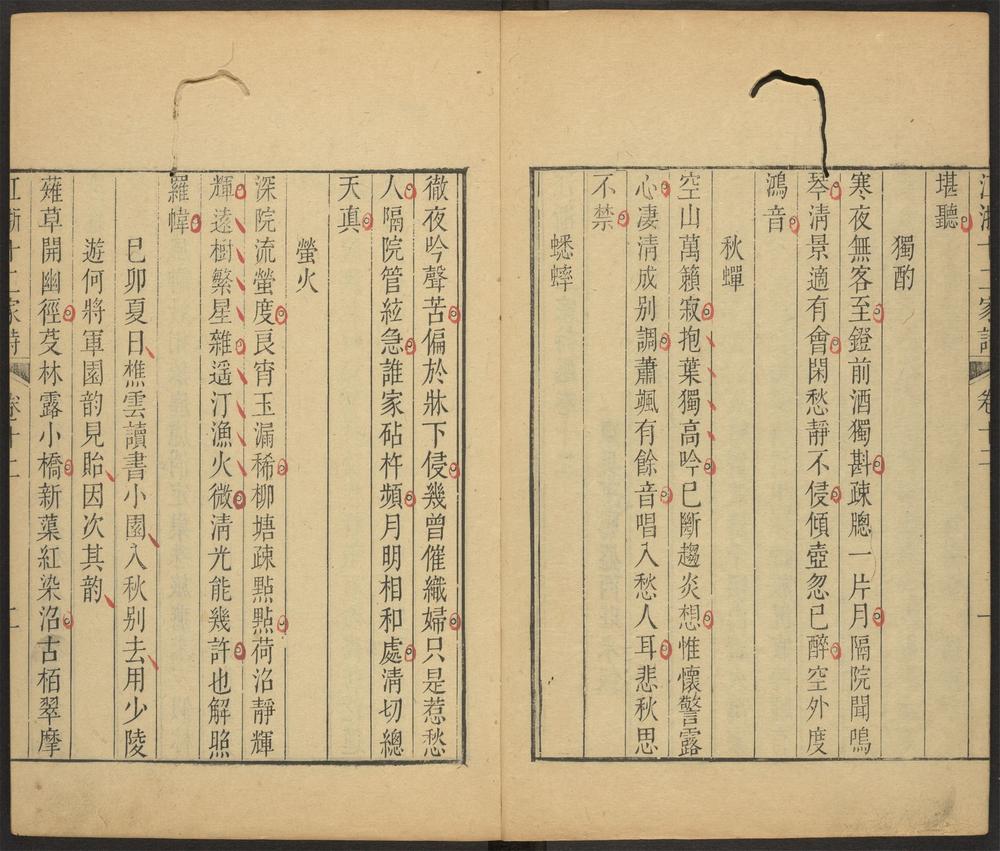 堪聽
獨酌
寒夜無客至鐙前酒獨斟疎牕一片月隔院聞鳴
琴淸景適有會閑愁靜不侵傾壺忽已醉空外度
鴻音
秋蟬
空山萬籟寂抱葉獨高吟已斷趨炎想惟懷警露
心凄淸成别調蕭颯有餘音唱入愁人耳悲秋思
不禁
蟋蟀
徹夜吟聲苦偏於牀下侵幾曾催織婦只是惹愁
人隔院管絃急誰家砧杵頻月明相和處淸切總
天真
螢火
深院流螢度良宵玉漏稀柳塘疎點點荷沼靜輝
輝遠樹繁星雜遥汀漁火微淸光能幾許也解照
羅幃
巳卯夏日樵雲讀書小園入秋别去用少陵
遊何將軍園韵見貽因次其韵
薙草開幽徑芟林露小橋新蕖紅染沼古栢翠摩